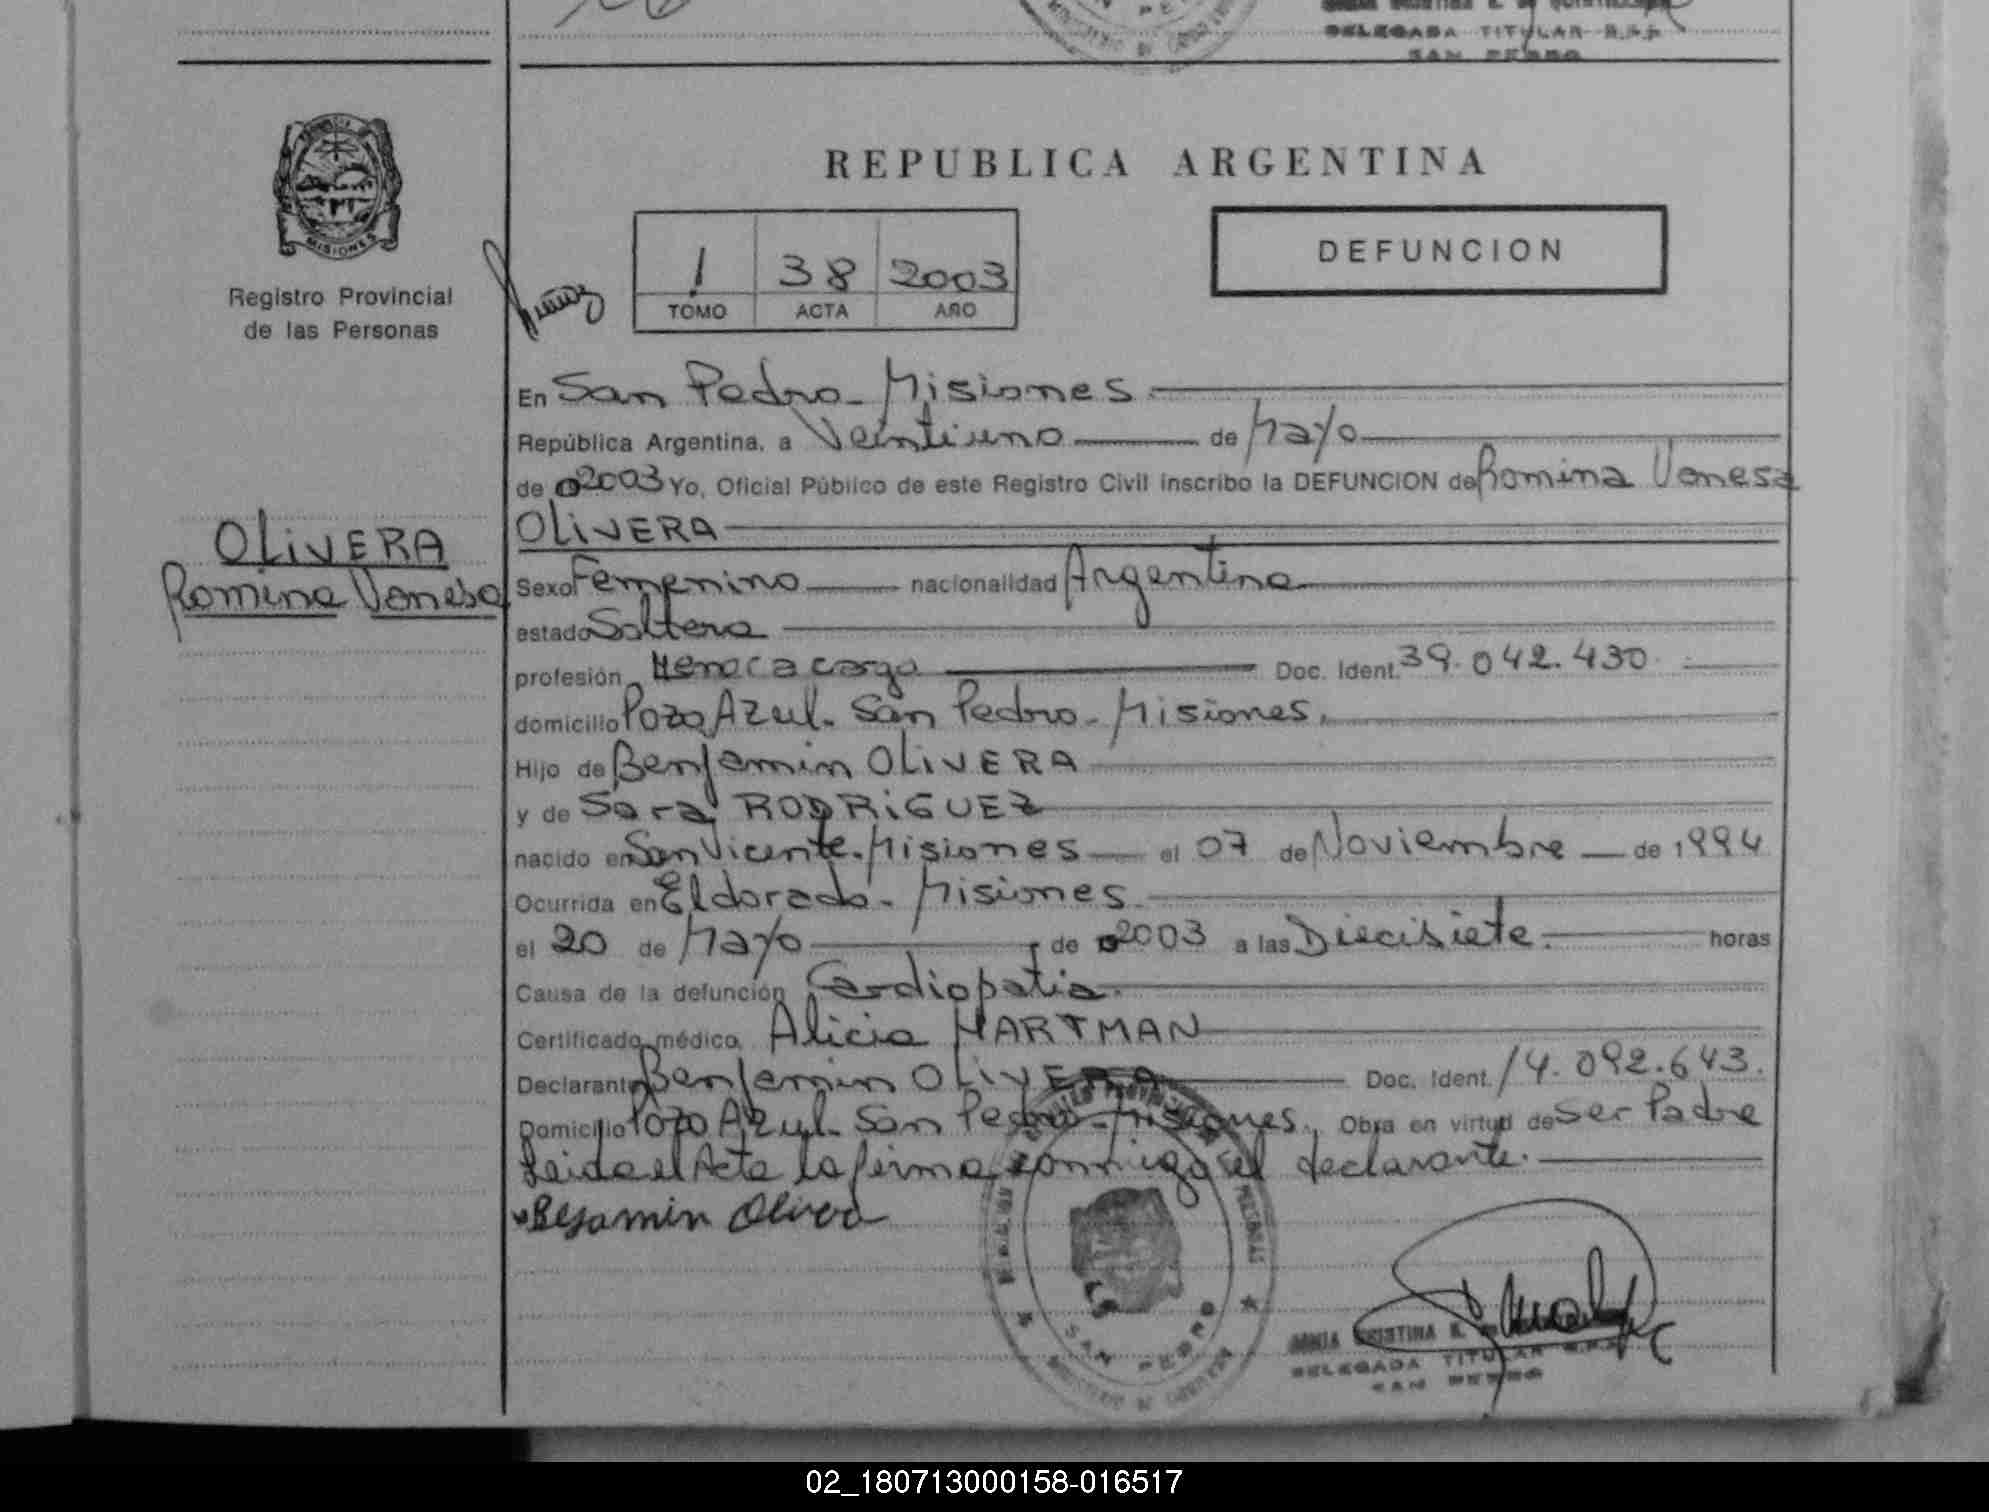 DELEGADA TITULAR R.P.P.
SAN PEDRO
MISIONES
Registro Provincial
de las Personas
REPUBLICA ARGENTINA
DEFUNCION
1 38 2003
TOMO ACTA AÑO
En San Pedro - Misiones
República Argentina, a Veintiuno de Mayo
de 2003 Yo, Oficial Público de este Registro Civil inscribo la DEFUNCION de Romina Vanesa
OLIVERA
OLIVERA
Romina Vanesa
Sexo Femenino nacionalidad Argentina
estado Soltera
profesión Menor a cargo Doc. Ident. 39.042.430
domicilio Pozo Azul - San Pedro - Misiones.
Hijo de Benjamin OLIVERA
y de Sara RODRIGUEZ
nacido en San Vicente - Misiones el 07 de Noviembre de 1994
Ocurrida en Eldorado - Misiones
el 20 de Mayo de 2003 a las Diecisiete. horas
Causa de la defunción Cardiopatia.
Certificado médico Alicia HARTMAN
Declarante Benjamin OLIVERA Doc. Ident. 14.092.643.
Domicilio Pozo Azul - San Pedro - Misiones. Obra en virtud de ser Padre
Leida el Acta la firma conmigo el declarante.
Bejamin Olivera
SAN PEDRO
DELEGADA TITULAR R.P.P.
SAN PEDRO
02_180713000158-016517